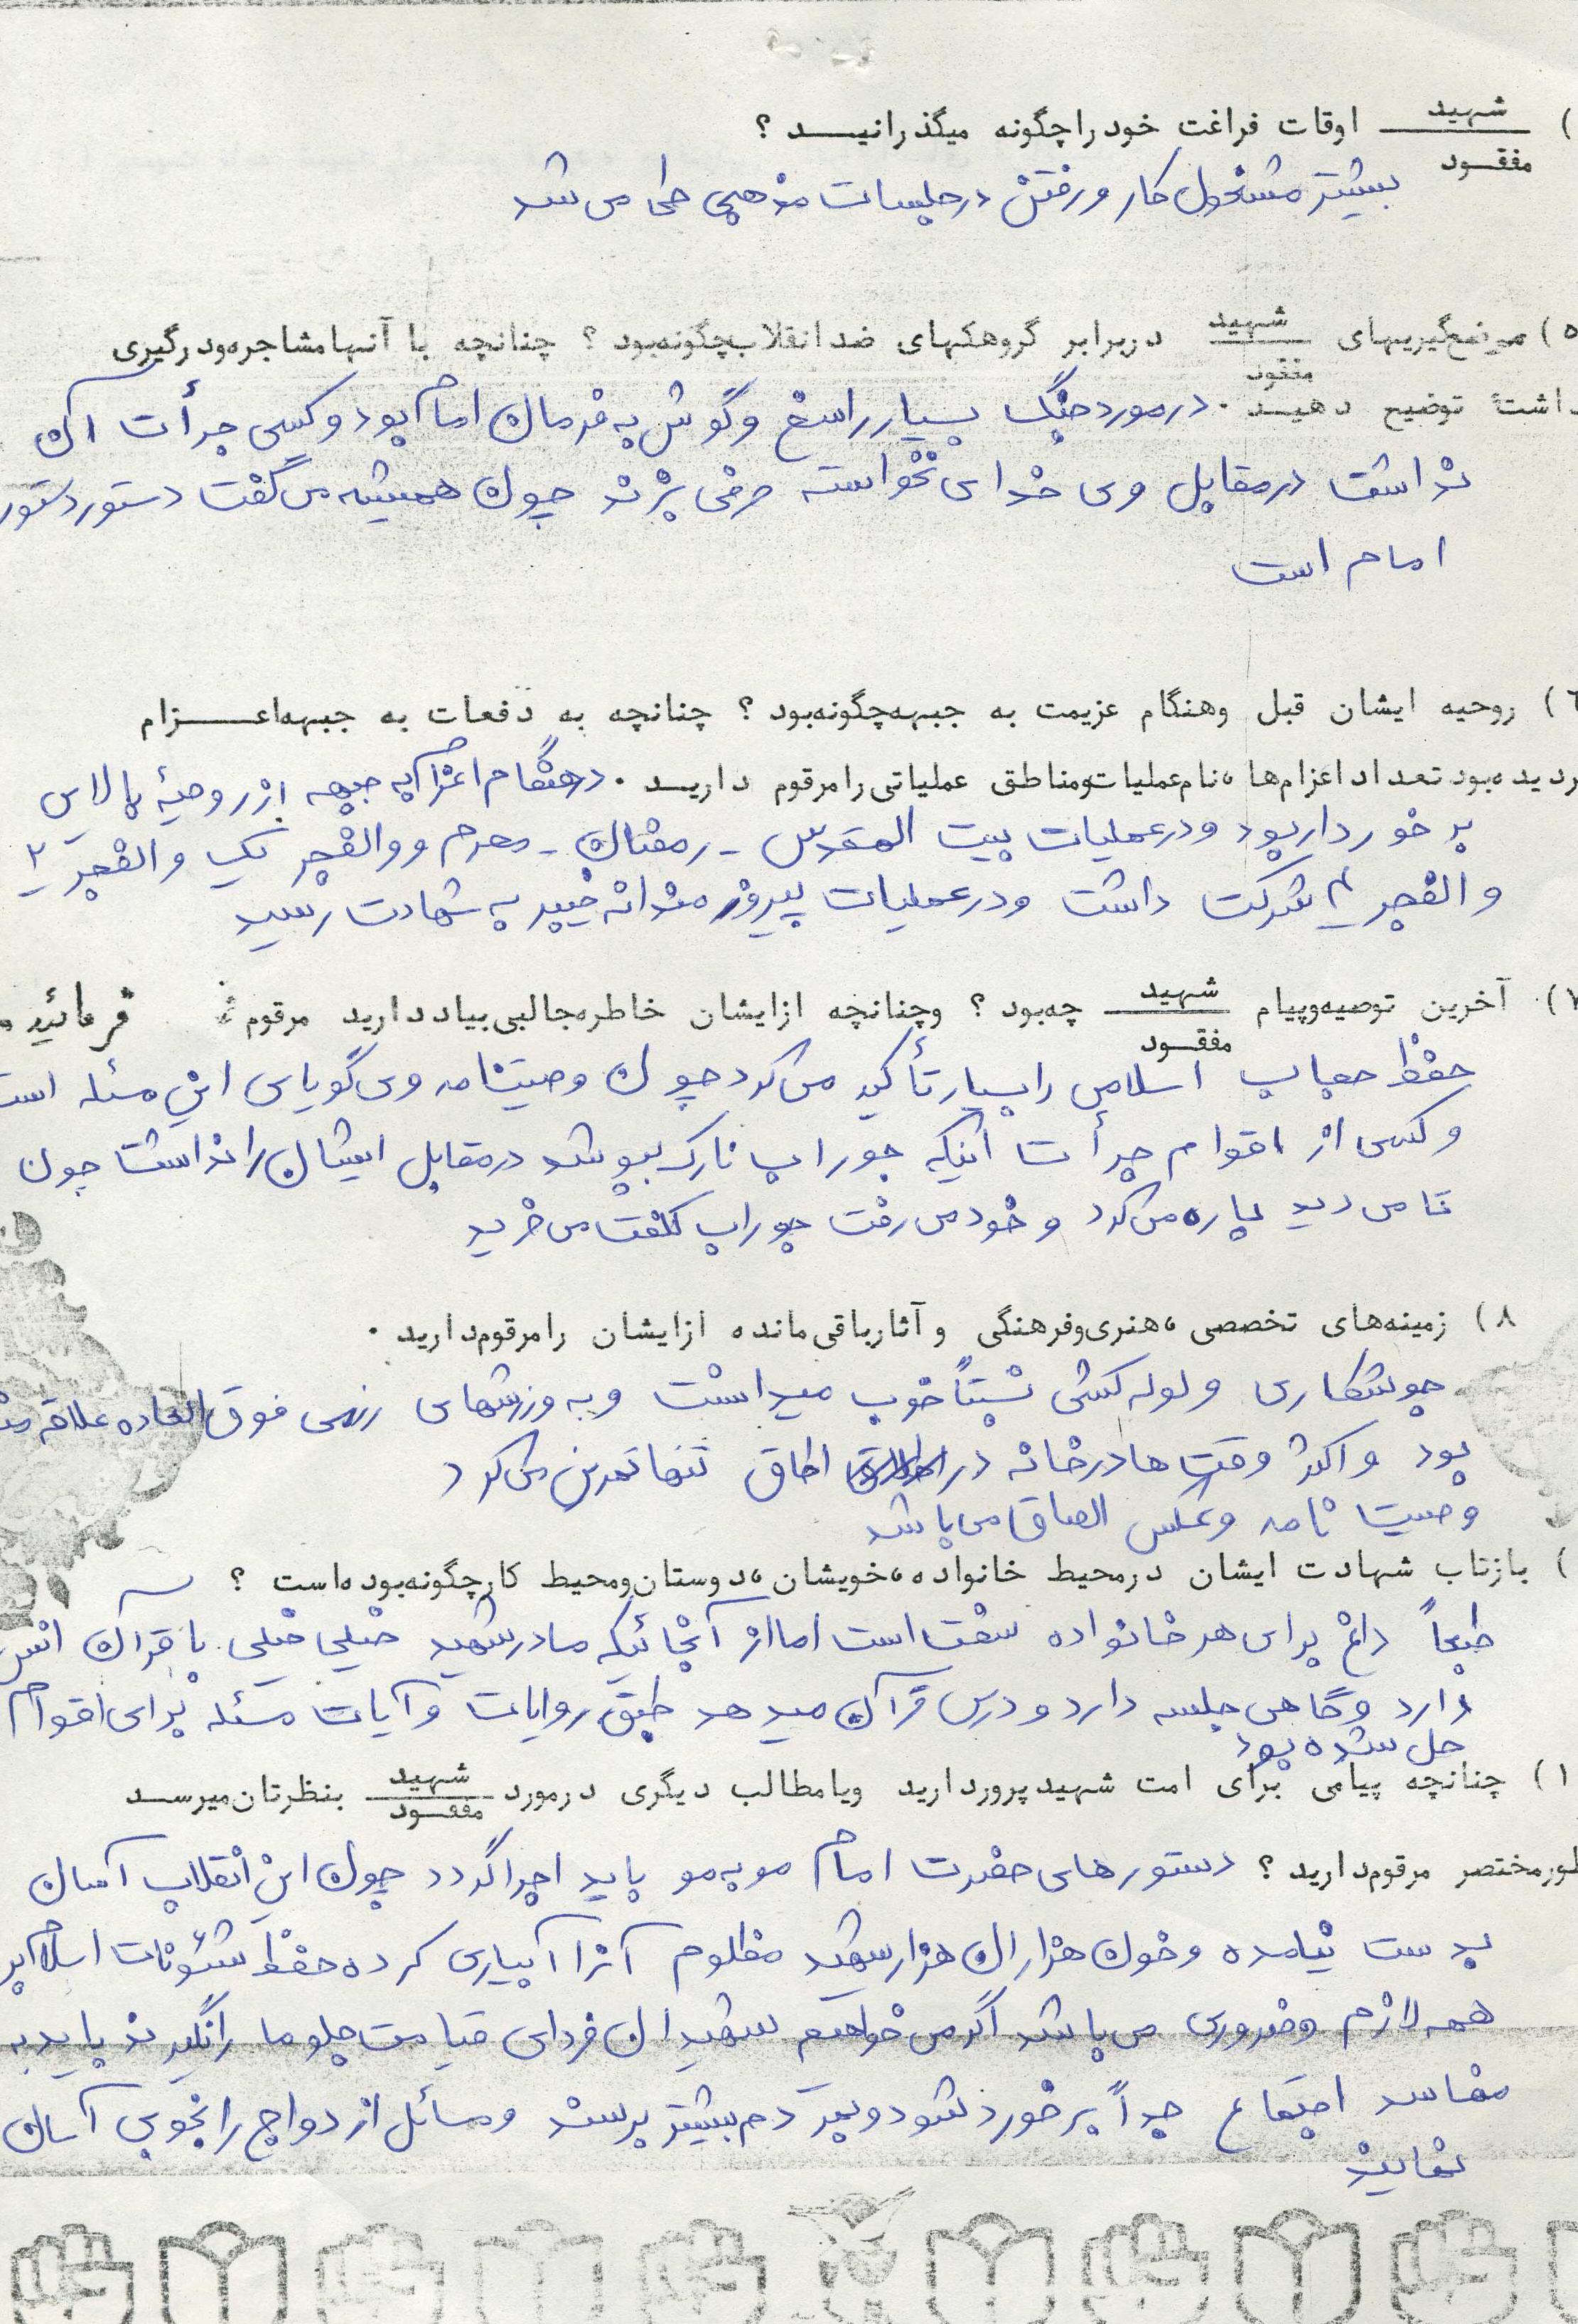 ) شهید مفقـود اوقات فراغت خود را چگونه میگذرانیـــد ؟
بیشتر مشغول کار و رفتن در جلسات مذهبی طی می شد
۵) موضعگیریهای شهید مفقود دربرابر گروهکهای ضد انقلاب چگونه بود ؟ چنانچه با آنها مشاجره و درگیری
داشتهٔ توضیح دهیـد . در مورد جنگ بسیار راسخ و گوش به فرمان امام بود و کسی جرأت آن
نداشت در مقابل وی خدای نخواسته حرفی بزند چون همیشه می گفت دستور دستور
امام است
٦) روحیه ایشان قبل و هنگام عزیمت به جبهه چگونه بود ؟ چنانچه به دفعات به جبهه اعـــزام
ردیده بود تعداد اعزام‌ها ، نام عملیات و مناطق عملیاتی را مرقوم داریـد . در هنگام اعزام به جبهه از روحیهٔ بالایی
بر خوردار بود و در عملیات بیت المقدس - رمضان - محرم و والفجر یک والفجر ۲
والفجر ۴ شرکت داشت و در عملیات پیروزمندانه خیبر به شهادت رسید
۷) آخرین توصیه و پیام شهید مفقـود چه بود ؟ و چنانچه از ایشان خاطره جالبی بیاد دارید مرقوم فرمائید .
حفظ حجاب اسلامی را بسیار تأکید می کرد چون وصیتنامه وی گویای این مسئله است
و کسی از اقوام جرأت اینکه جوراب نازک بپوشد در مقابل ایشان را نداشت چون
تا می دید پاره می کرد و خود می رفت جوراب کلفت می خرید
۸) زمینه‌های تخصصی ، هنری و فرهنگی و آثار باقی مانده از ایشان را مرقوم دارید .
جوشکاری و لوله کشی نسبتاً خوب میدانست و به ورزشهای رزمی فوق العاده علاقه مند
بود و اکثر وقت ها در خانه در اطاق تنها تمرین می کرد
وصیت نامه و عکس الصاق می باشد
) بازتاب شهادت ایشان در محیط خانواده ، خویشان ، دوستان و محیط کار چگونه بوده است ؟
طبعاً داغ برای هر خانواده سخت است اما از آنجائیکه مادر شهید خیلی خیلی با قرآن انس
دارد و گاهی جلسه دارد و درس قرآن میدهد طبق روایات و آیات مسئله برای اقوام
حل شده بود
۱) چنانچه پیامی برای امت شهید پرور دارید و یا مطالب دیگری در مورد شهید مفقـود بنظرتان میرسـد
طور مختصر مرقوم دارید ؟ دستورهای حضرت امام مو به مو باید اجرا گردد چون این انقلاب آسان
بدست نیامده و خون هزاران هزار شهید مظلوم آنرا آبیاری کرده حفظ شئونات اسلام بر
همه لازم و ضروری می باشد اگر می خواهیم شهیدان فردای قیامت جلو ما را نگیرند باید به
مفاسد اجتماع جداً برخورد شود و بدرد مردم بیشتر برسند و مسائل ازدواج را بخوبی آسان
نمایند